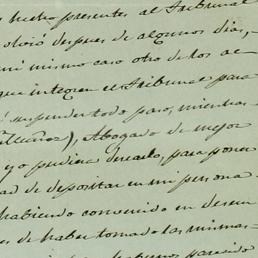 hecho presentes al Tribunal
despues de algunos dias,
mi mismo caso otro de los ac
que integran el Tribunal para
suspender todo paso, mientras
Abogado de mejor
y yo pudiera desearlo, para poner
ad de depositar en mi persona
habiendo convenido en desem
es de haber tomado las mismas